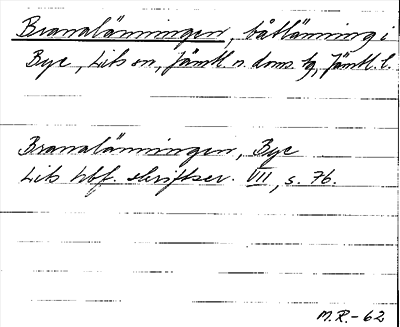 Brandlänningen, båtlänning i
Bye, Lits sn, Jämtl. n. doms. tg, Jämtl. l.
Brandlänningen, Bye
Lits hbf. skriftser. VII, s. 76.
M.R.-62